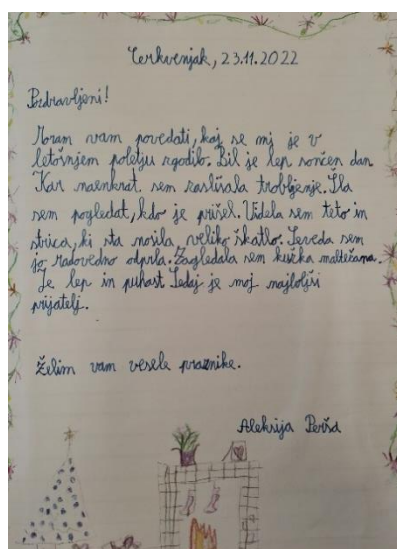 Cerkvenjak, 23.11.2022
Pozdravljeni!
Moram vam povedati, kaj se mi je v
letošnjem poletju zgodilo. Bil je lep sončen dan.
Kar naenkrat sem zaslišala trobljenje. Šla
sem pogledat, kdo je prišel. Videla sem teto in
strica, ki sta nosila veliko škatlo. Seveda sem
jo radovedno odprla. Zagledala sem kužka maltežana.
Je lep in puhast. Sedaj je moj najboljši
prijatelj.
Želim vam vesele praznike.
Aleksija Perša